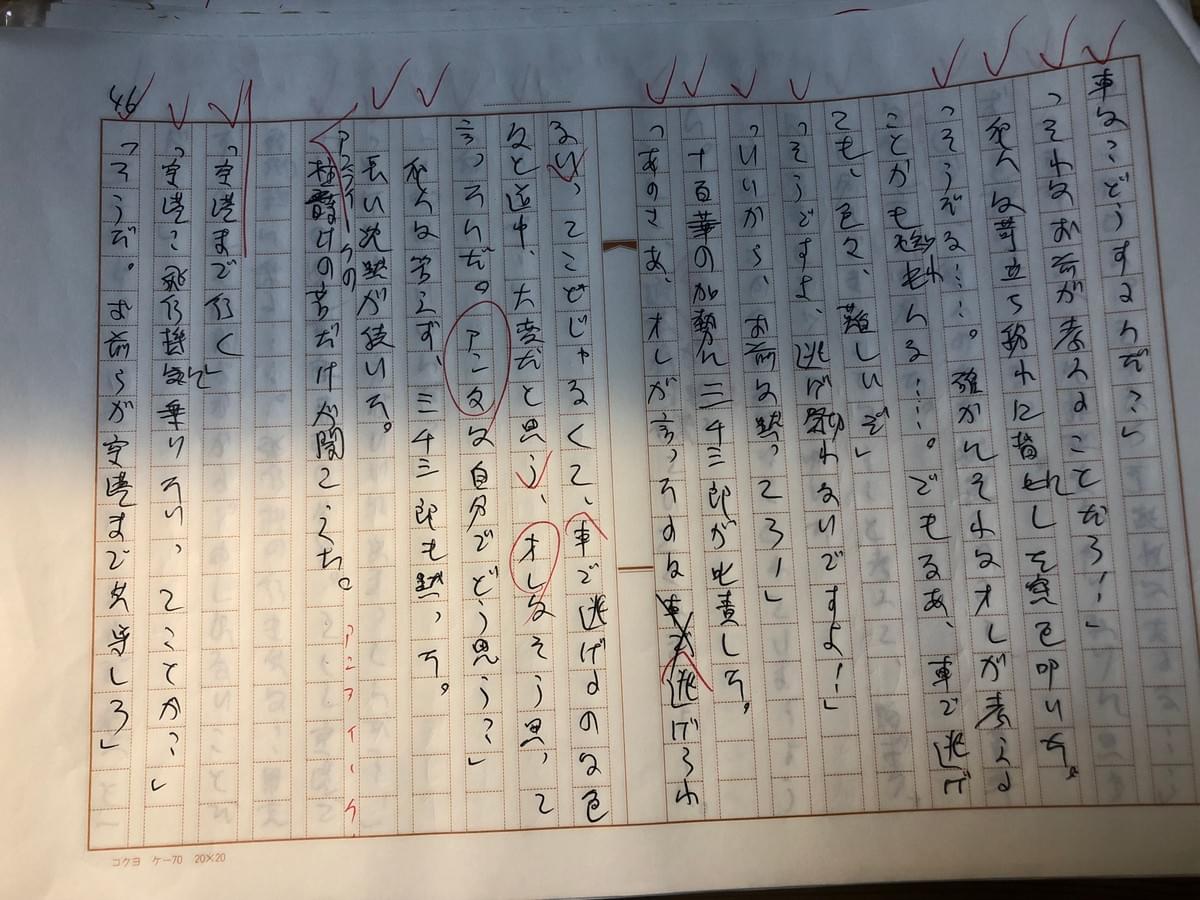 車は?どうするんだ?」
「それはお前が考えることだろ!」
は苛立ち紛れに 窓を叩いた。
「そうだな……。確かにそれはオレが考える
ことかも知れんな……。でもなあ、車で逃げ
ても、色々、難しいぞ」
「そうですよ、逃げ切れないですよ!」
「いいから、お前は黙ってろ!」
十百華の加勢に三千三郎が叱責した。
「あのさあ、オレが言ったのは 逃げられ
ないってことじゃなくて、車で逃げるのは色
々と途中、大変だと思う、オレはそう思って
言ったんだ。アンタは自分でどう思う?」
は答えず、三千三郎も黙った。
長い沈黙が続いた。
の音だけが聞こえた。
「空港まで行く」
「空港で飛行機に乗りたいってことか?」
「そうだ。お前らが空港まで しろ」
46
コクヨ ケー70 20×20